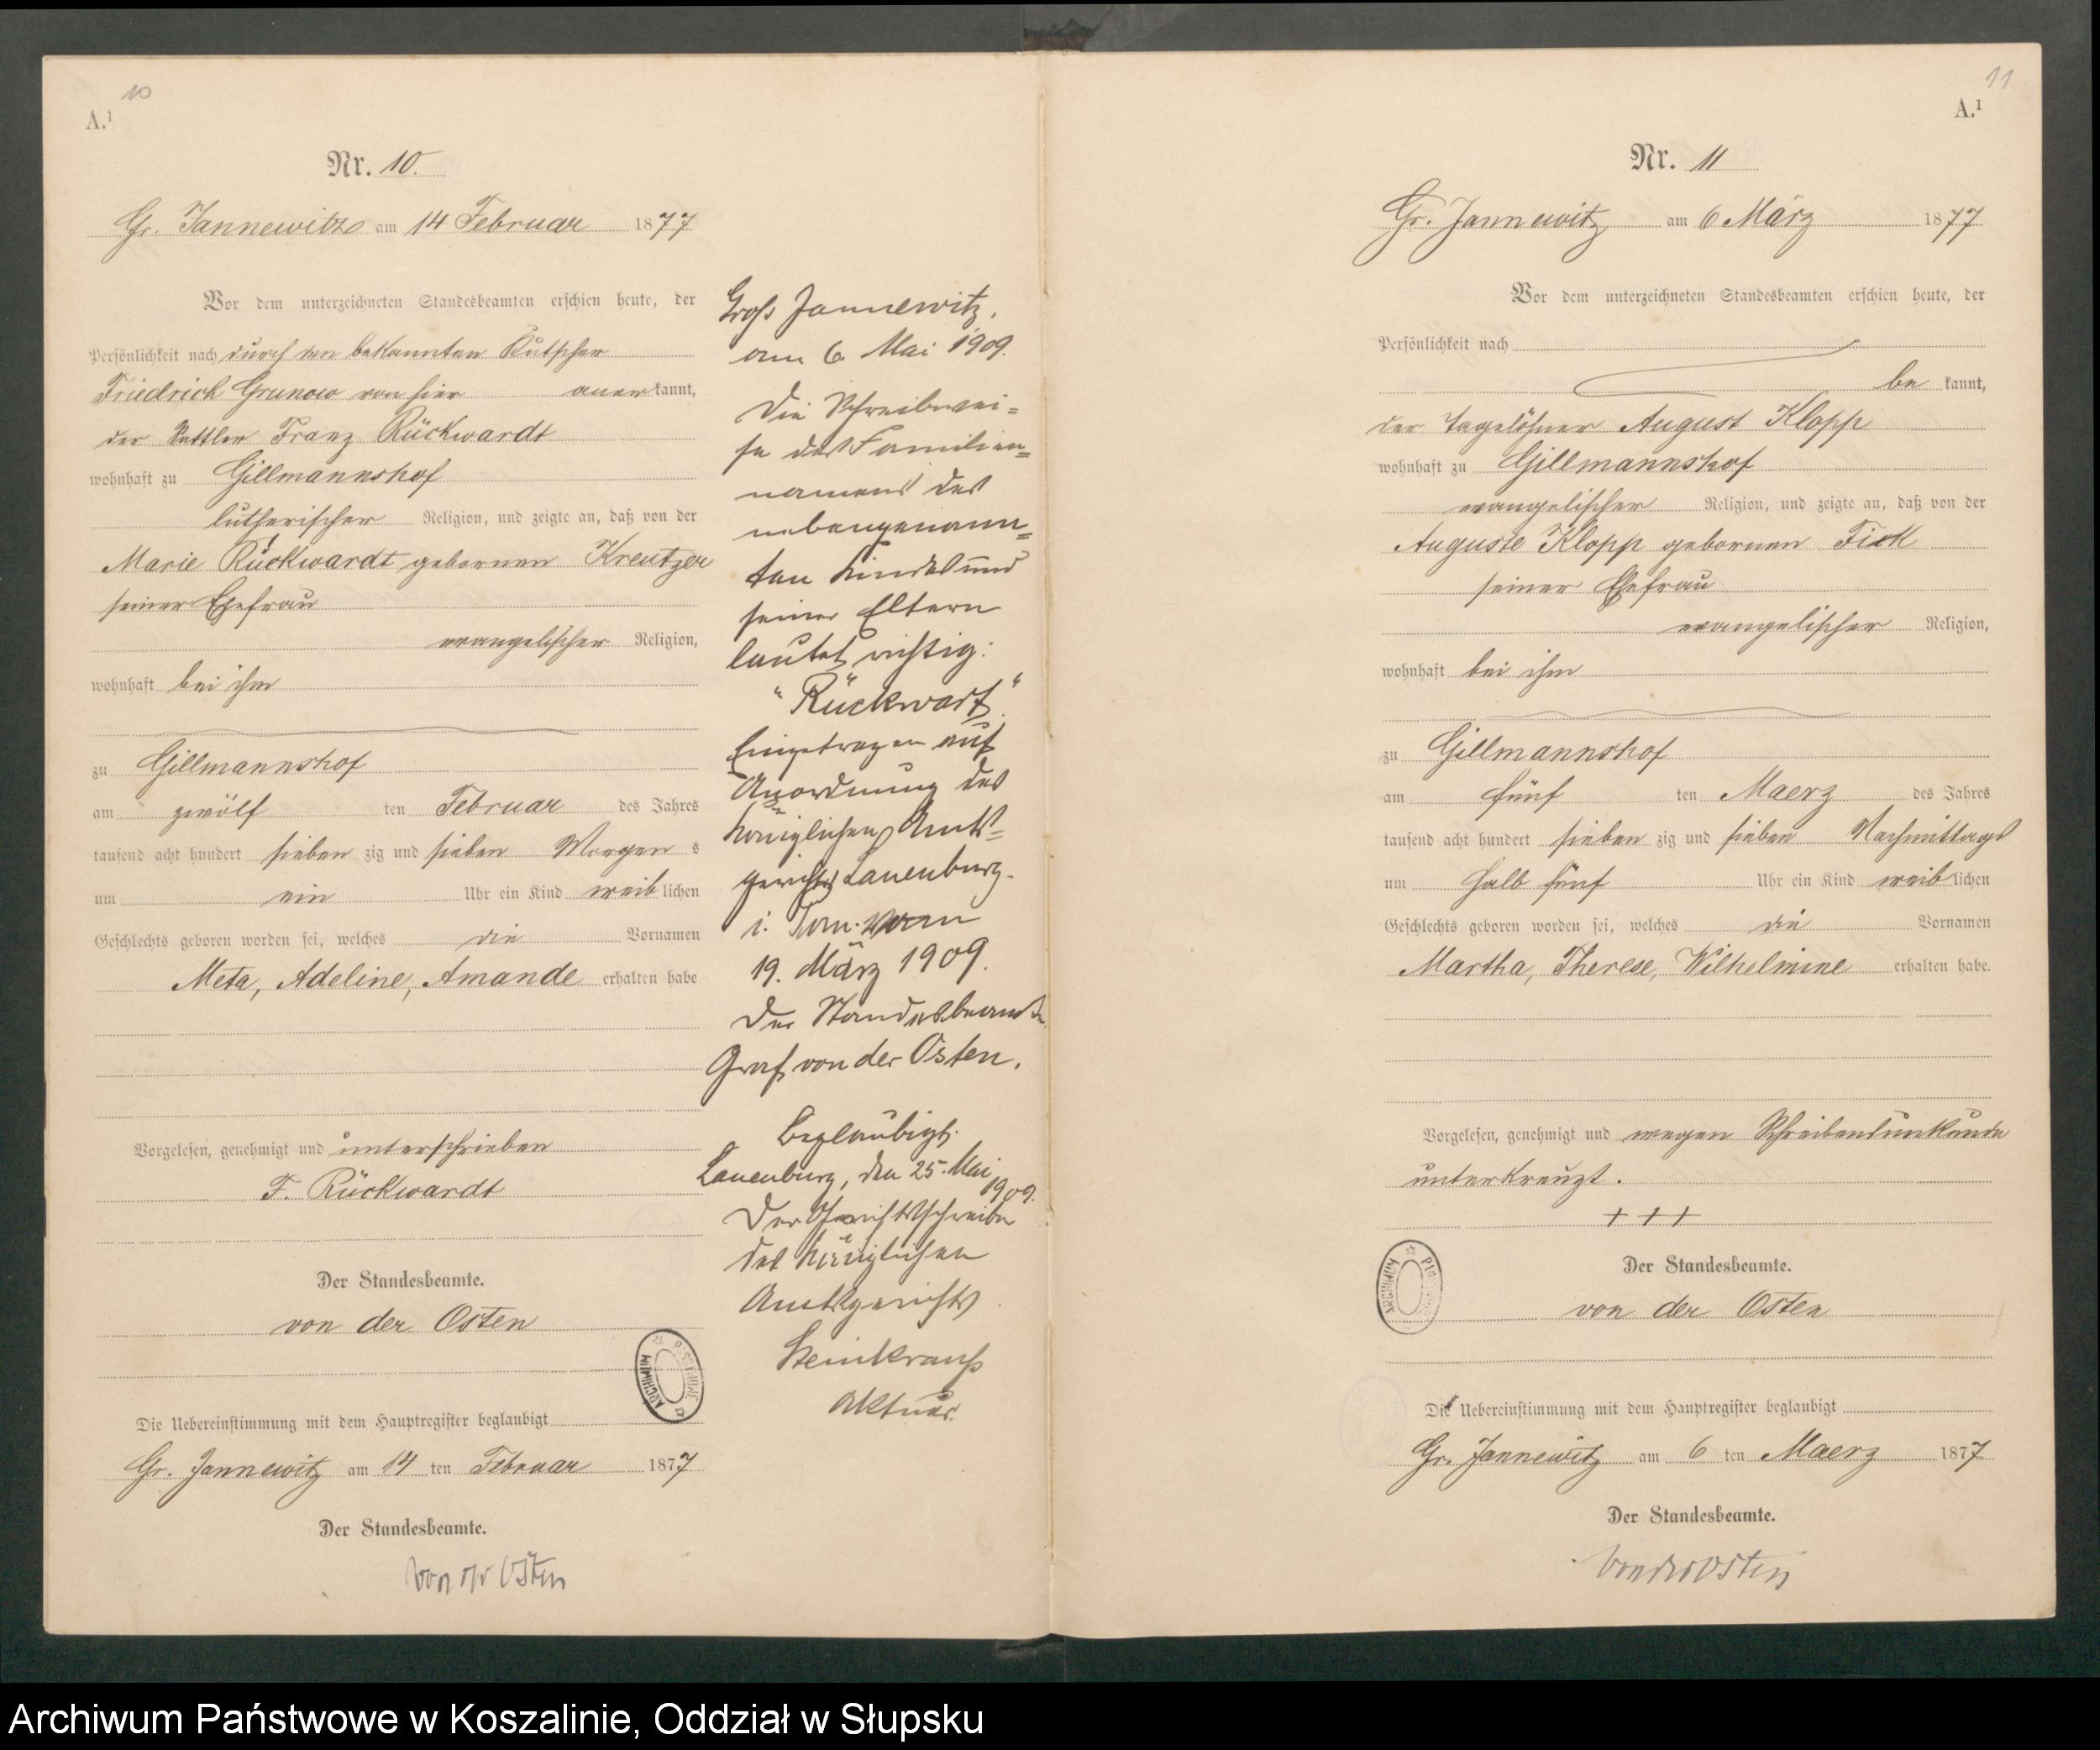 10
A.¹
Nr. 10.
Gr. Jannewitz am 14 Februar 1877
Vor dem unterzeichneten Standesbeamten erschien heute, der
Persönlichkeit nach durch den bekannten Kutscher
Friedrich Grunow von hier anerkannt,
der Sattler Franz Rückwardt
wohnhaft zu Gillmannshof
lutherischer Religion, und zeigte an, daß von der
Marie Rückwardt gebornen Kreutzer
seiner Ehefrau
evangelischer Religion,
wohnhaft bei ihm
zu Gillmannshof
am zwölf ten Februar des Jahres
tausend acht hundert sieben zig und sieben Morgens
um ein Uhr ein Kind weiblichen
Geschlechts geboren worden sei, welches die Vornamen
Meta, Adeline, Amande erhalten habe
Vorgelesen, genehmigt und unterschrieben
F. Rückwardt
Der Standesbeamte.
von der Osten
Die Uebereinstimmung mit dem Hauptregister beglaubigt
Gr. Jannewitz am 14 ten Februar 1877
Der Standesbeamte.
von der Osten
Groß Jannewitz,
am 6. Mai 1909.
Die Schreibwei=
se des Familien=
namens des
nebengenann=
ten Kindes und
seiner Eltern
lautet richtig:
"Rückwart".
Eingetragen auf
Anordnung des
Königlichen Amts=
gerichts Lauenburg
i. Pom. vom
19. März 1909.
Der Standesbeamte.
Graf von der Osten.
Beglaubigt.
Lauenburg, den 25. Mai
1909.
Der Gerichtsschreiber
des Königlichen
Amtsgerichts
Steinkrauß
Aktuar.
ARCHIWUM
11
A.¹
Nr. 11
Gr. Jannewitz am 6 März 1877
Vor dem unterzeichneten Standesbeamten erschien heute, der
Persönlichkeit nach
be kannt,
der Tagelöhner August Klopp
wohnhaft zu Gillmannshof
evangelischer Religion, und zeigte an, daß von der
Auguste Klopp gebornen Fick
seiner Ehefrau
evangelischer Religion,
wohnhaft bei ihm
zu Gillmannshof
am fünf ten Maerz des Jahres
tausend acht hundert sieben zig und sieben Nachmittags
um halb fünf Uhr ein Kind weiblichen
Geschlechts geboren worden sei, welches die Vornamen
Martha, Therese, Wilhelmine erhalten habe.
Vorgelesen, genehmigt und wegen Schreibensunkunde
unterkreuzt.
+++
Der Standesbeamte.
von der Osten
ARCHIWUM
Die Uebereinstimmung mit dem Hauptregister beglaubigt
Gr. Jannewitz am 6 ten Maerz 1877
Der Standesbeamte.
von der Osten
Archiwum Państwowe w Koszalinie, Oddział w Słupsku